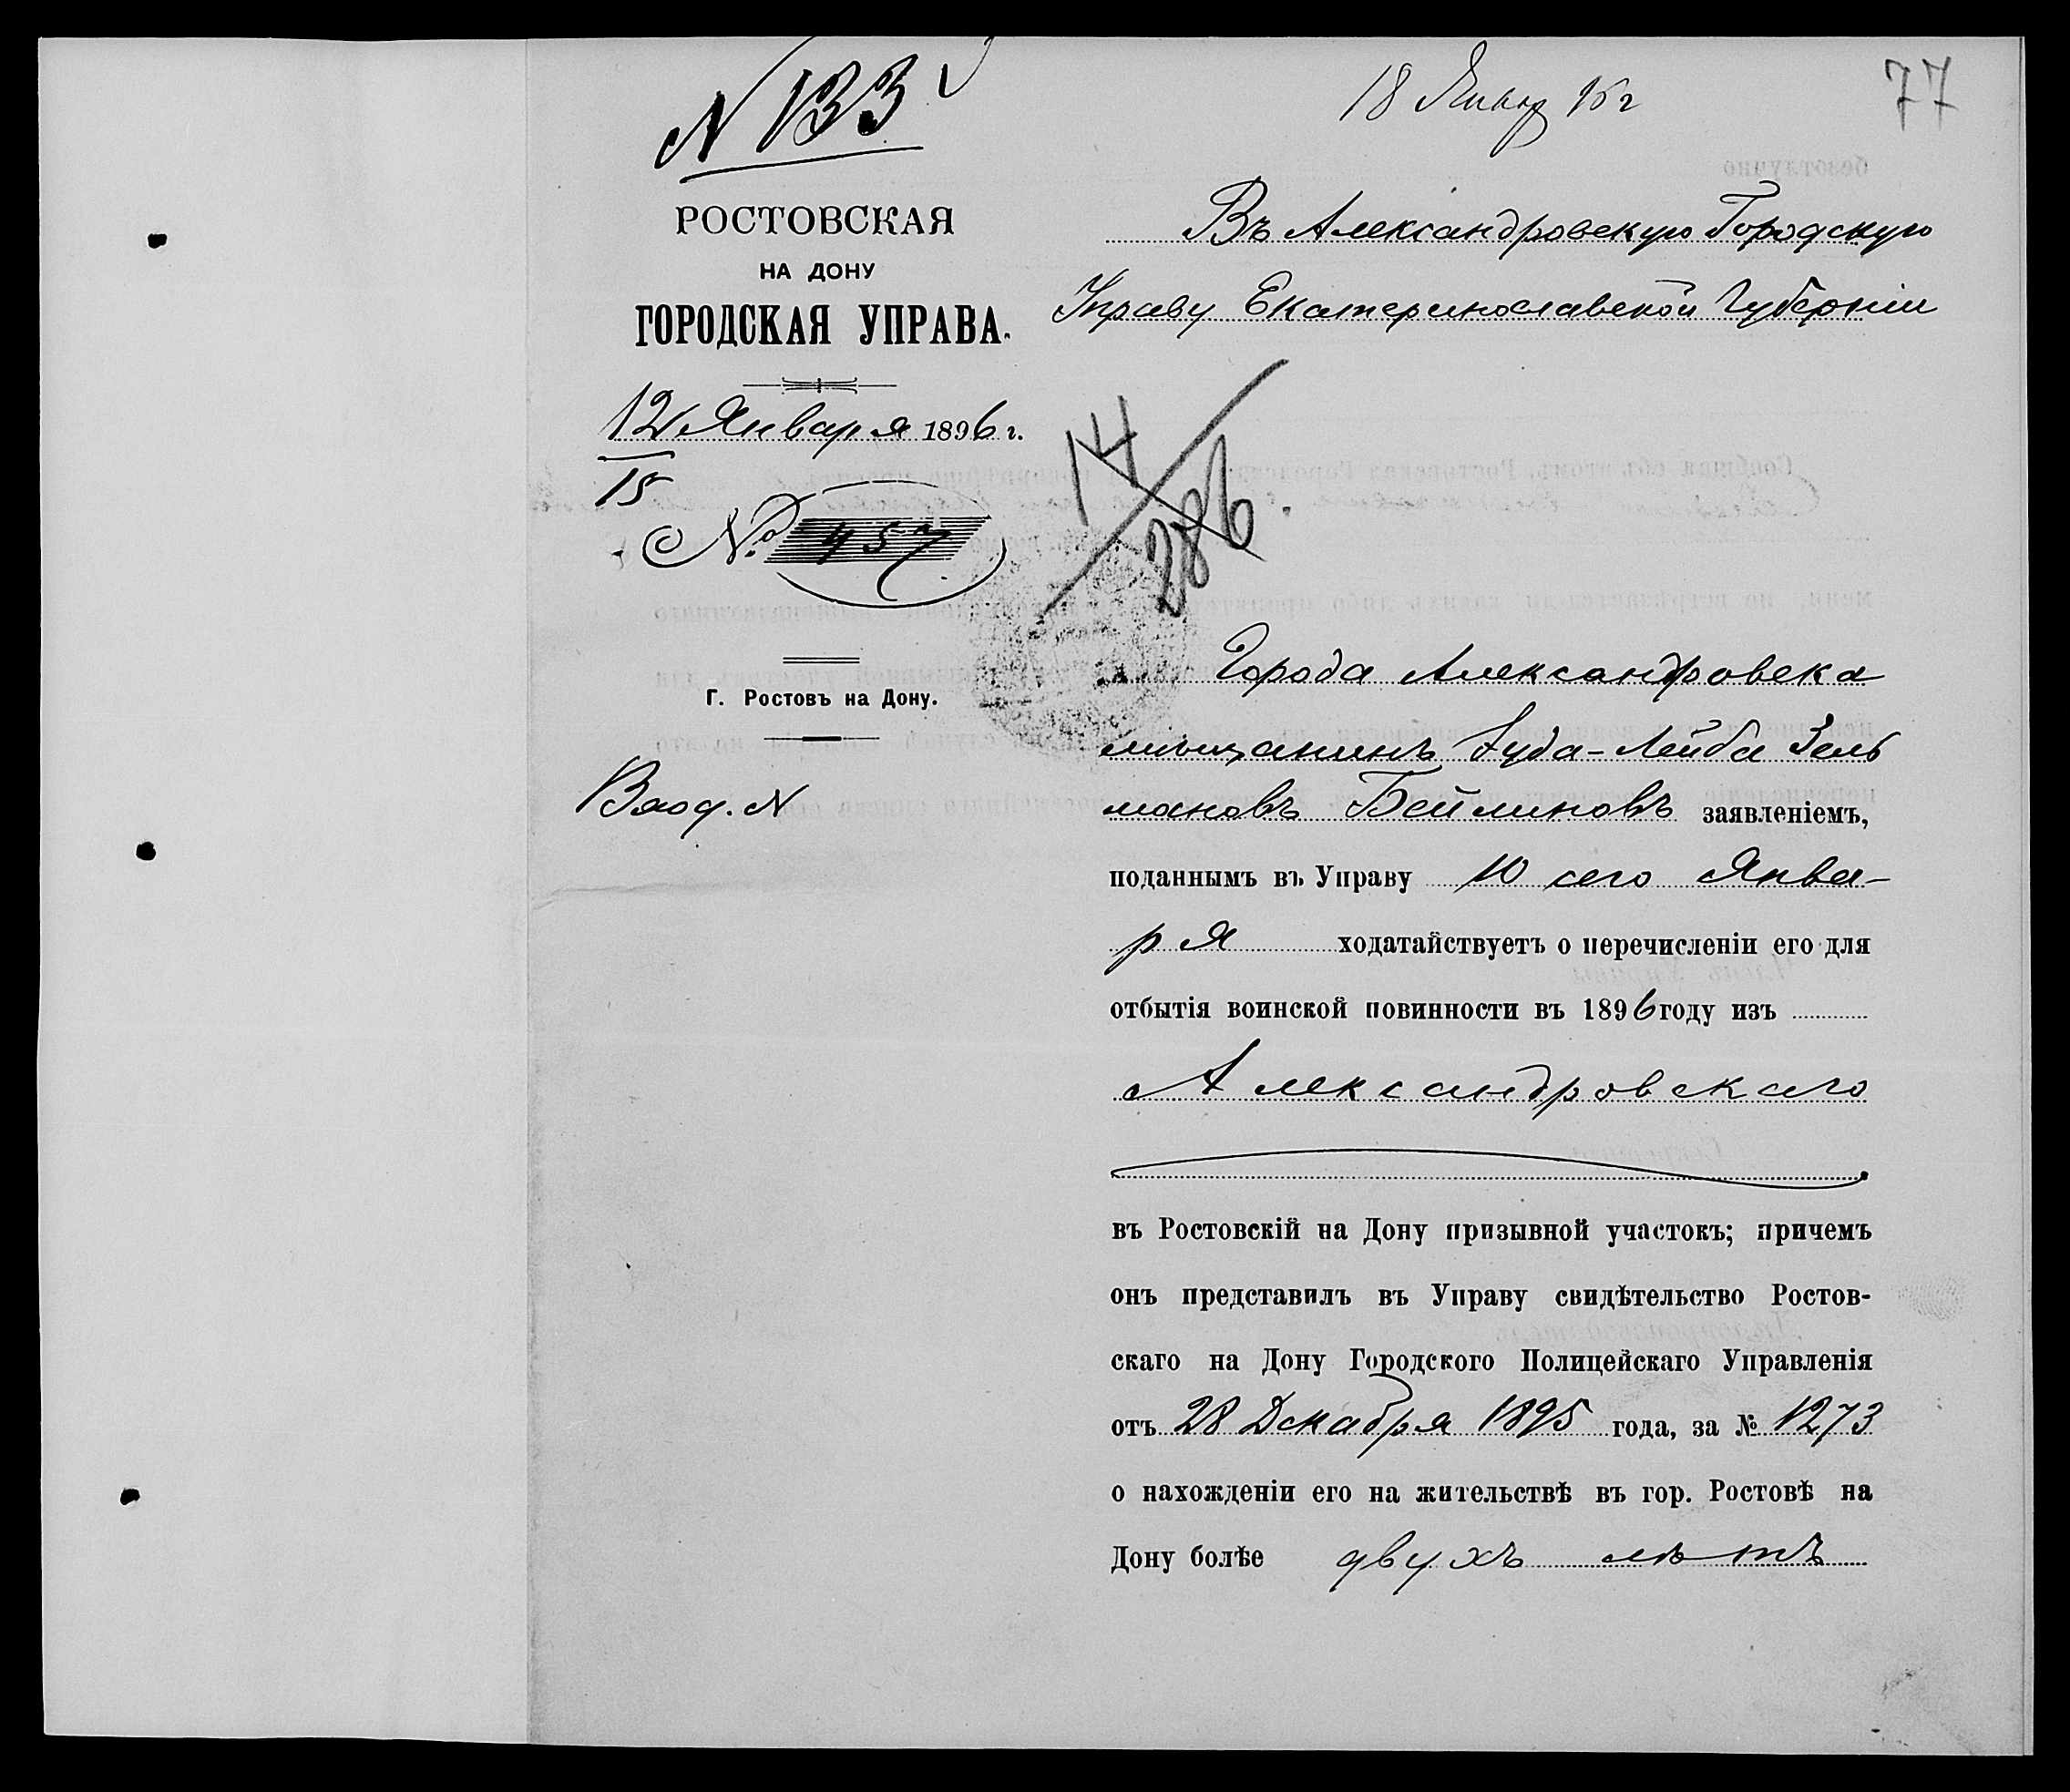 N 133
РОСТОВСКАЯ
НА ДОНУ
ГОРОДСКАЯ УПРАВА.
12 Января 1896 г.
15
№ 457
Г. Ростовъ на Дону.
Вход. N
18 Январ 96 г
77
Въ Александровскую Городскую
Управу Екатеринославской Губерніи
14
286.
Города Александровска
мѣщанинъ Іуда-Лейба Зель
мановъ Беймоновъ заявленіемъ,
поданнымъ въ Управу 10 сего Янва-
ря ходатайствуетъ о перечисленіи его для
отбытія воинской повинности въ 1896 году изъ
Александровскаго
въ Ростовскій на Дону призывной участокъ; причемъ
онъ представилъ въ Управу свидѣтельство Ростов-
скаго на Дону Городского Полицейскаго Управленія
отъ 28 Декабря 1895 года, за № 1273
о нахожденіи его на жительствѣ въ гор. Ростовѣ на
Дону болѣе двухъ лѣтъ